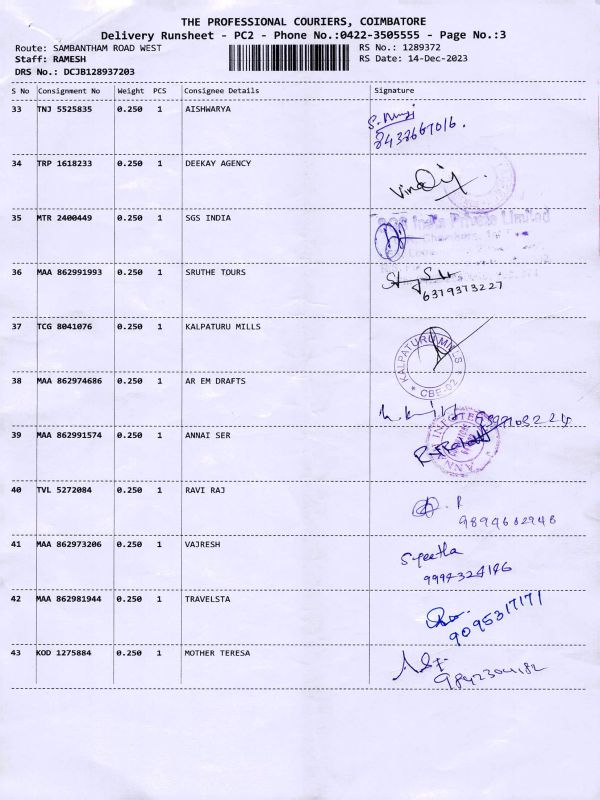 THE PROFESSIONAL COURIERS, COIMBATORE
Delivery Runsheet - PC2 - Phone No.:0422-3505555 - Page No.:3
Route: SAMBANTHAM ROAD WEST RS No.: 1289372
Staff: RAMESH RS Date: 14-Dec-2023
DRS No.: DCJB128937203
S No Consignment No Weight PCS Consignee Details Signature
33 TNJ 5525835 0.250 1 AISHWARYA
34 TRP 1618233 0.250 1 DEEKAY AGENCY
35 MTR 2400449 0.250 1 SGS INDIA
SGS India Private Limited
36 MAA 862991993 0.250 1 SRUTHE TOURS
6379373227
37 TCG 8041076 0.250 1 KALPATURU MILLS
KALPATURU MILLS
CBE-02
38 MAA 862974686 0.250 1 AR EM DRAFTS
39 MAA 862991574 0.250 1 ANNAI SER
40 TVL 5272084 0.250 1 RAVI RAJ
9894682948
41 MAA 862973206 0.250 1 VAJRESH
9994324146
42 MAA 862981944 0.250 1 TRAVELSTA
9095317171
43 KOD 1275884 0.250 1 MOTHER TERESA
9842304182